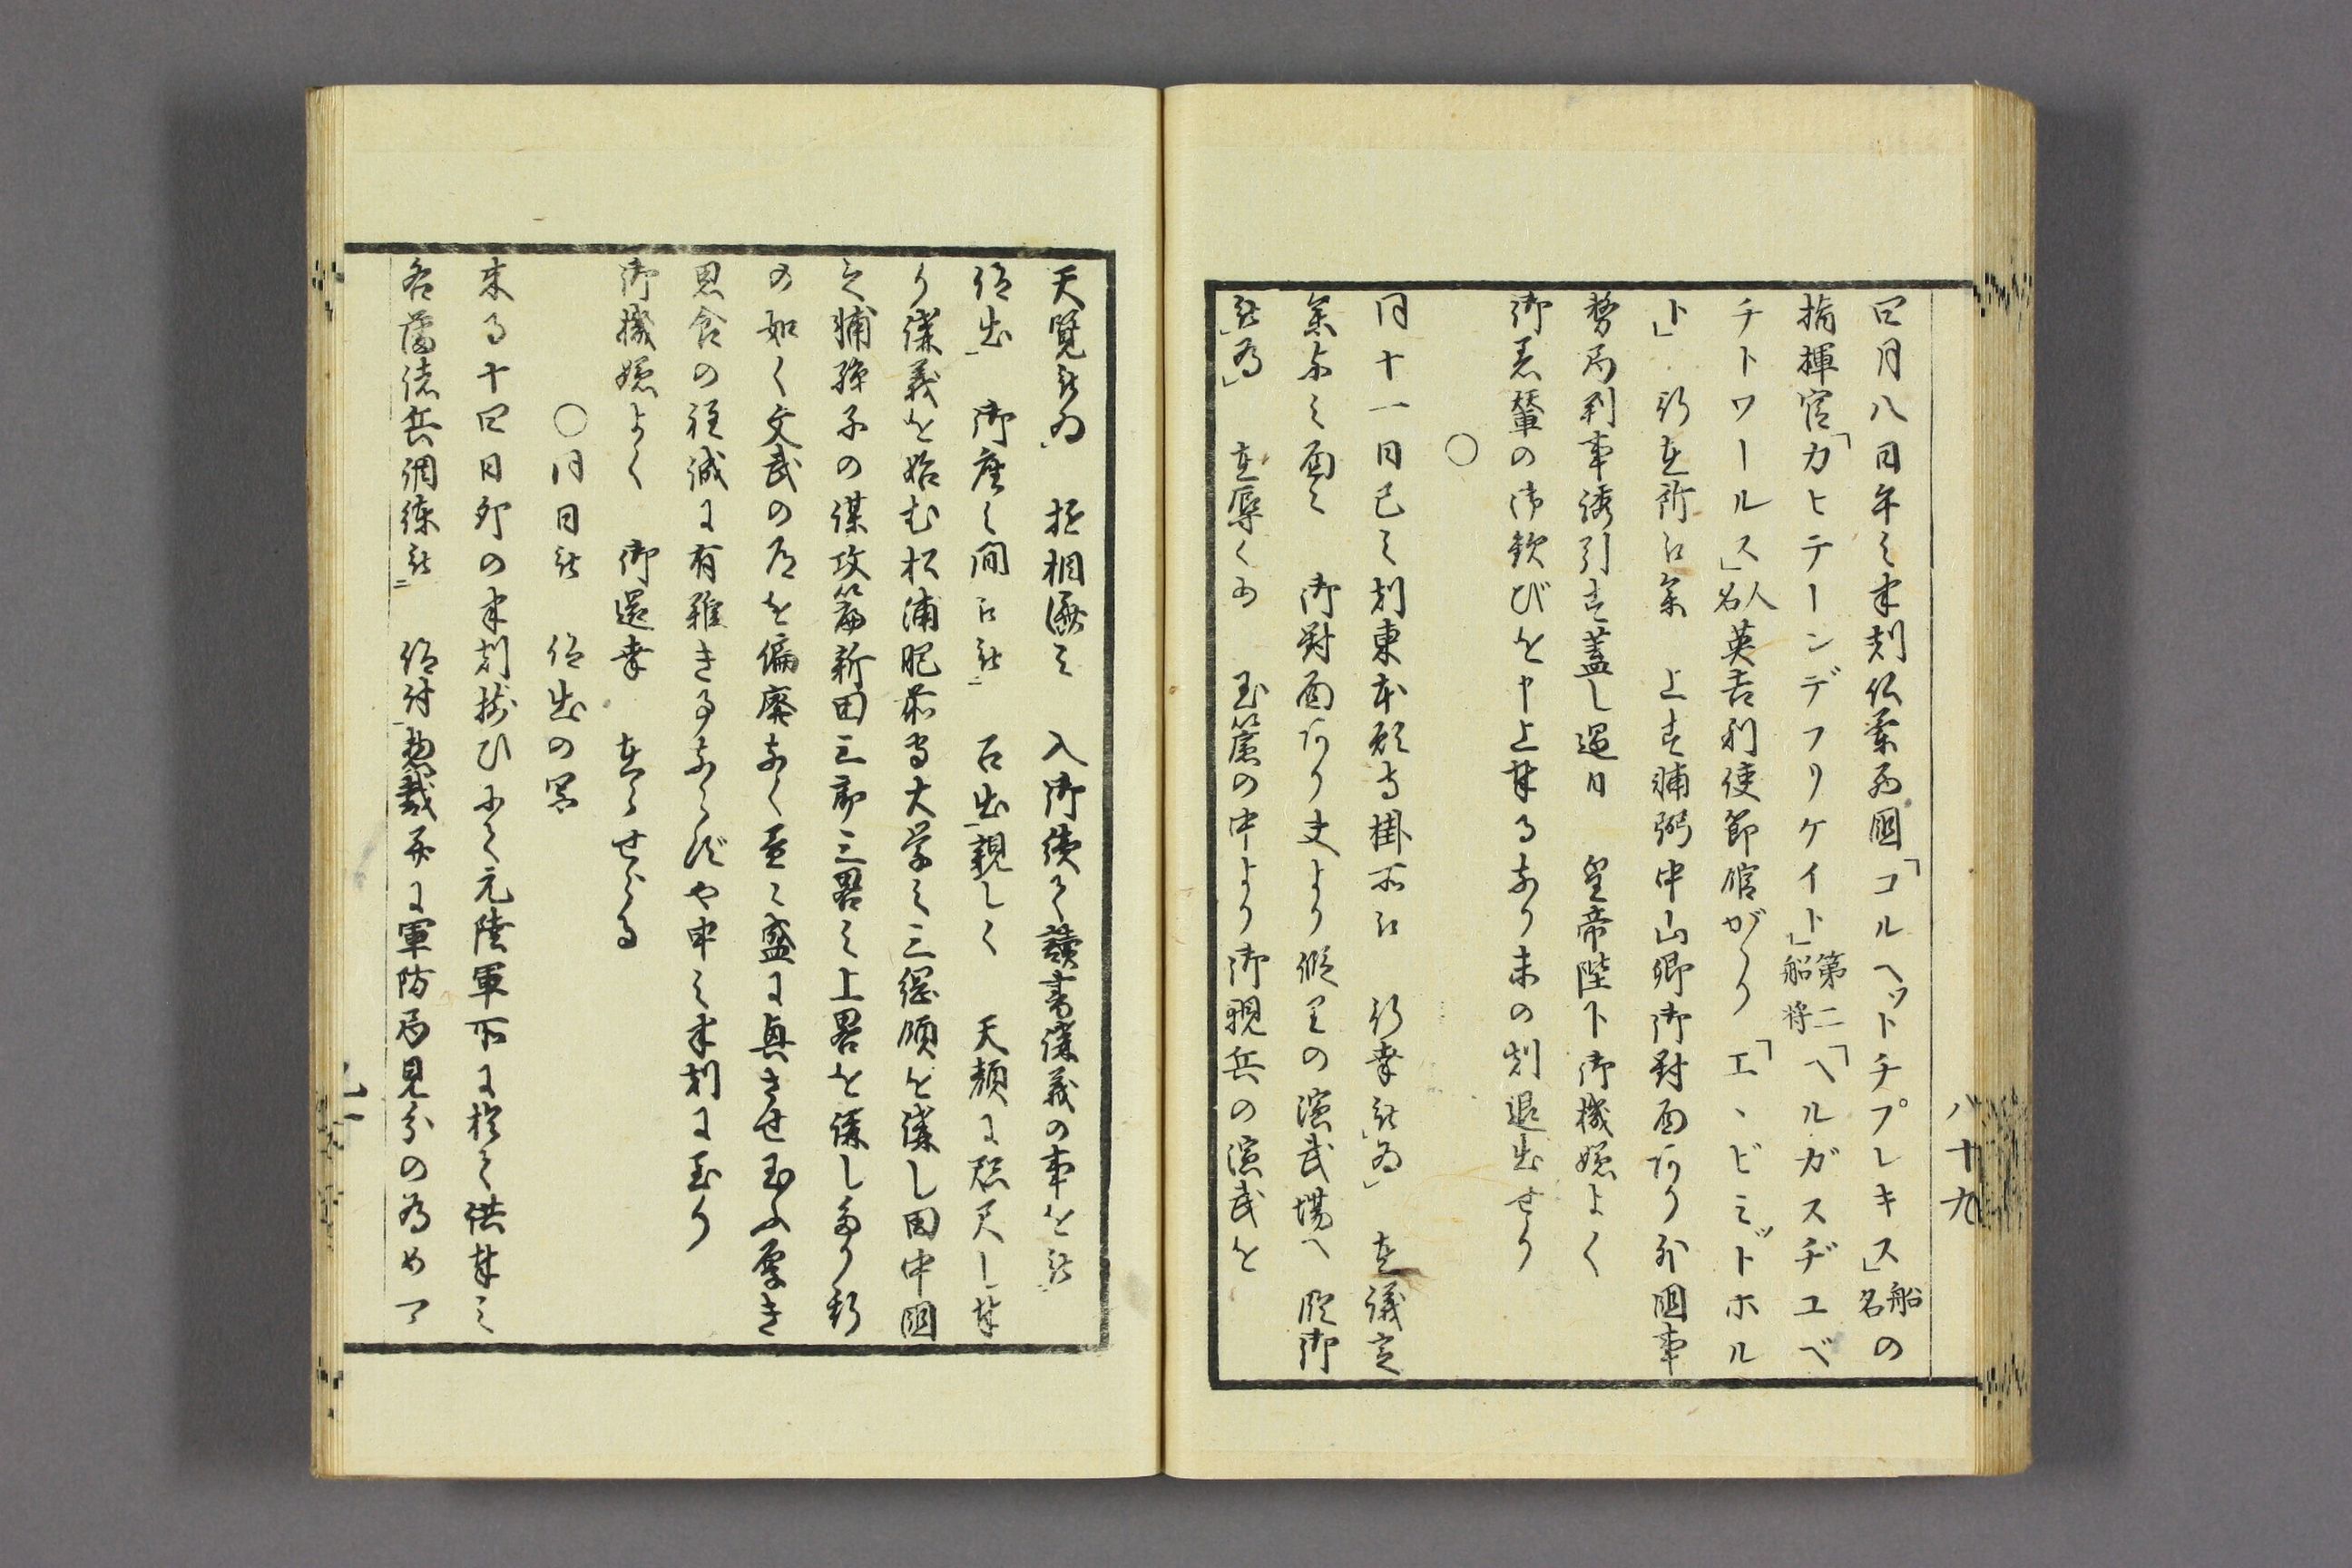 八十九
四月八日午之半刻仏蘭西國「コルヘツトチプレキス」船名の
指揮官「カヒテーンデフリケイト」第二船将「ヘルガスヂユベ
チトワールス」人名英吉利使節館がゝり「エ、ビミツドホル
ト」行在所江参 上す輔弼中山卿御對面ありり外國事
務局判事誘引す蓋し過日 皇帝陛下御機嫌よく
御着輦の御歓びを申上奉るなり未の刻退出せり
○
同十一日巳之刻東本願寺掛所江 行幸被為」 在議定
参与之面々 御對面あり夫より假里の演武場へ 臨御
被為」 在辱くも 玉簾の中より御親兵の演武を
天覧被為 猶相濟て 入御續て讀書講義の事を被
仰出 御座之間江被 召出親しく 天顔に咫尺し奉
り講義を始む松浦肥前守大学之三綱領を講し田中國
之輔孫子の謀攻篇新田三郎三畧之上畧を講したり斯
の如く文武の道を偏廃なく並々盛に興させ玉ふ厚き
思食の程誠に有難き事ならずや申之半刻に至り
御機嫌よく 御還幸 在らせらる
○同日被 仰出の写
来る十四日卯の半刻揃ひにて元陸軍所に於て供奉之
各藩徒兵調練被 仰付惣裁并に軍防局見分の為め了